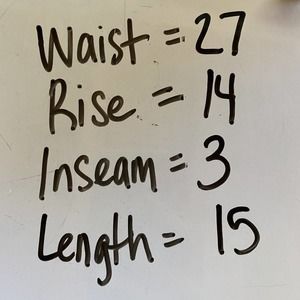 Waist = 27
Rise = 14
Inseam = 3
Length = 15